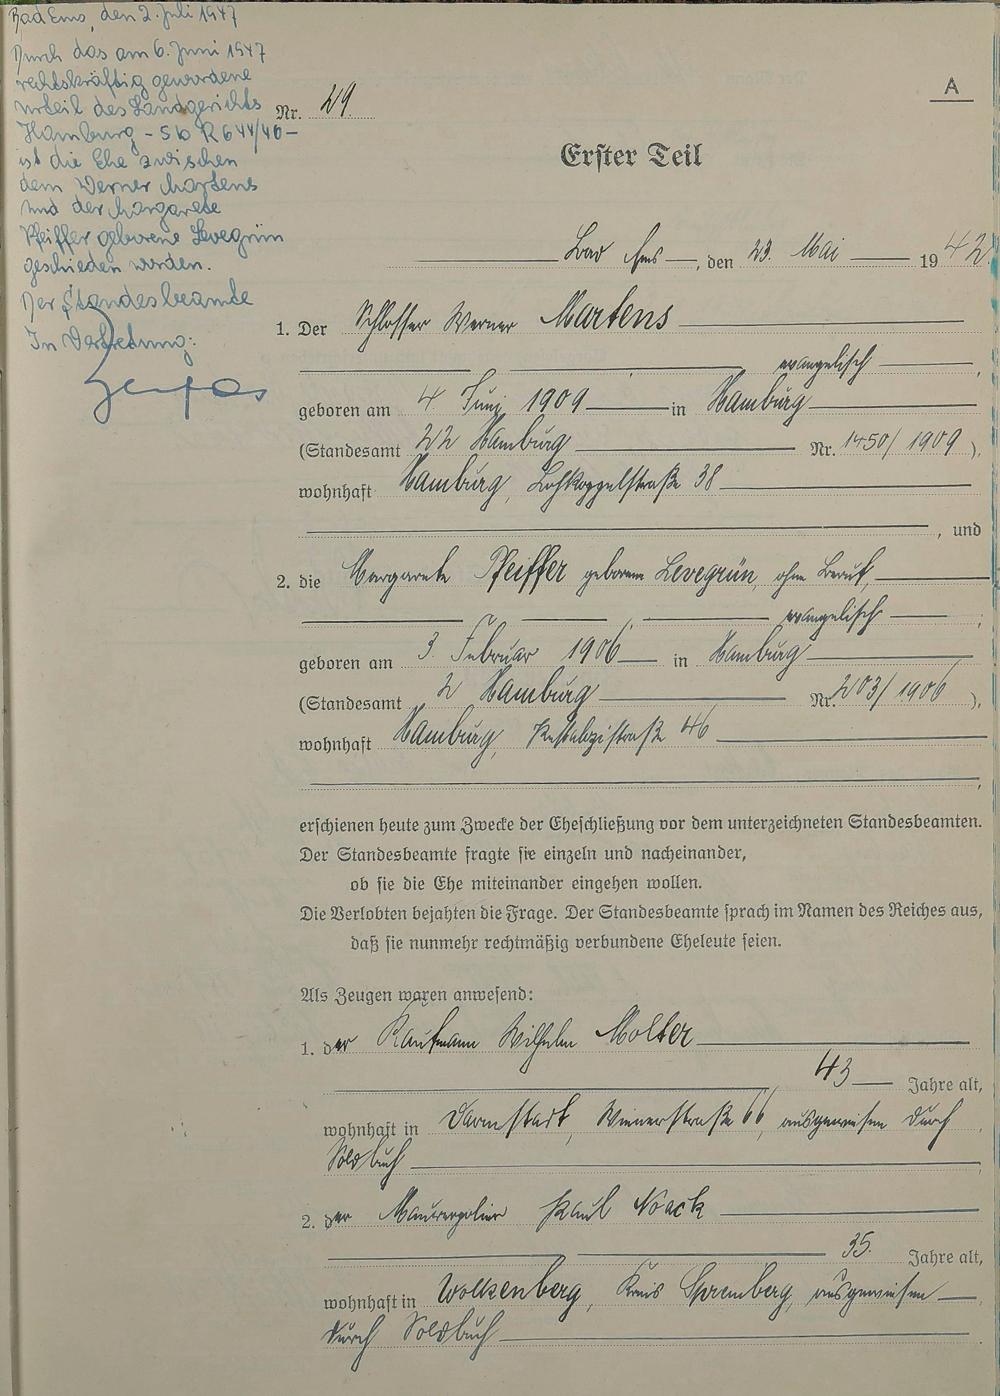 Bad Ems, den 2. Juli 1947
Durch das am 6. Juni 1947
rechtskräftig gewordene
Urteil des Landgerichts
Hamburg - 5b R 644/46 -
ist die Ehe zwischen
dem Werner Martens
und der Margarete
Pfeiffer geborene Levegrün
geschieden worden.
Der Standesbeamte
In Vertretung:
A
Nr. 29.
Erster Teil
Bad Ems, den 23. Mai 1942.
1. Der Schlosser Werner Martens
evangelisch,
geboren am 4. Juni 1909 in Hamburg
(Standesamt 22 Hamburg Nr. 1450/1909),
wohnhaft Hamburg, Lohkoppelstraße 38
, und
2. die Margarete Pfeiffer geborene Levegrün, ohne Beruf,
evangelisch,
geboren am 3. Februar 1906 in Hamburg
(Standesamt 2 Hamburg Nr. 203/1906),
wohnhaft Hamburg, Pestalozzistraße 46
,
erschienen heute zum Zwecke der Eheschließung vor dem unterzeichneten Standesbeamten.
Der Standesbeamte fragte sie einzeln und nacheinander,
ob sie die Ehe miteinander eingehen wollen.
Die Verlobten bejahten die Frage. Der Standesbeamte sprach im Namen des Reiches aus,
daß sie nunmehr rechtmäßig verbundene Eheleute seien.
Als Zeugen waren anwesend:
1. der Kaufmann Wilhelm Molter
43 Jahre alt,
wohnhaft in Darmstadt, Wienerstraße 66, ausgewiesen durch
Soldbuch,
2. der Maurerpolier Paul Noack
35. Jahre alt,
wohnhaft in Wolkenberg, Kreis Spremberg, ausgewiesen
durch Soldbuch.